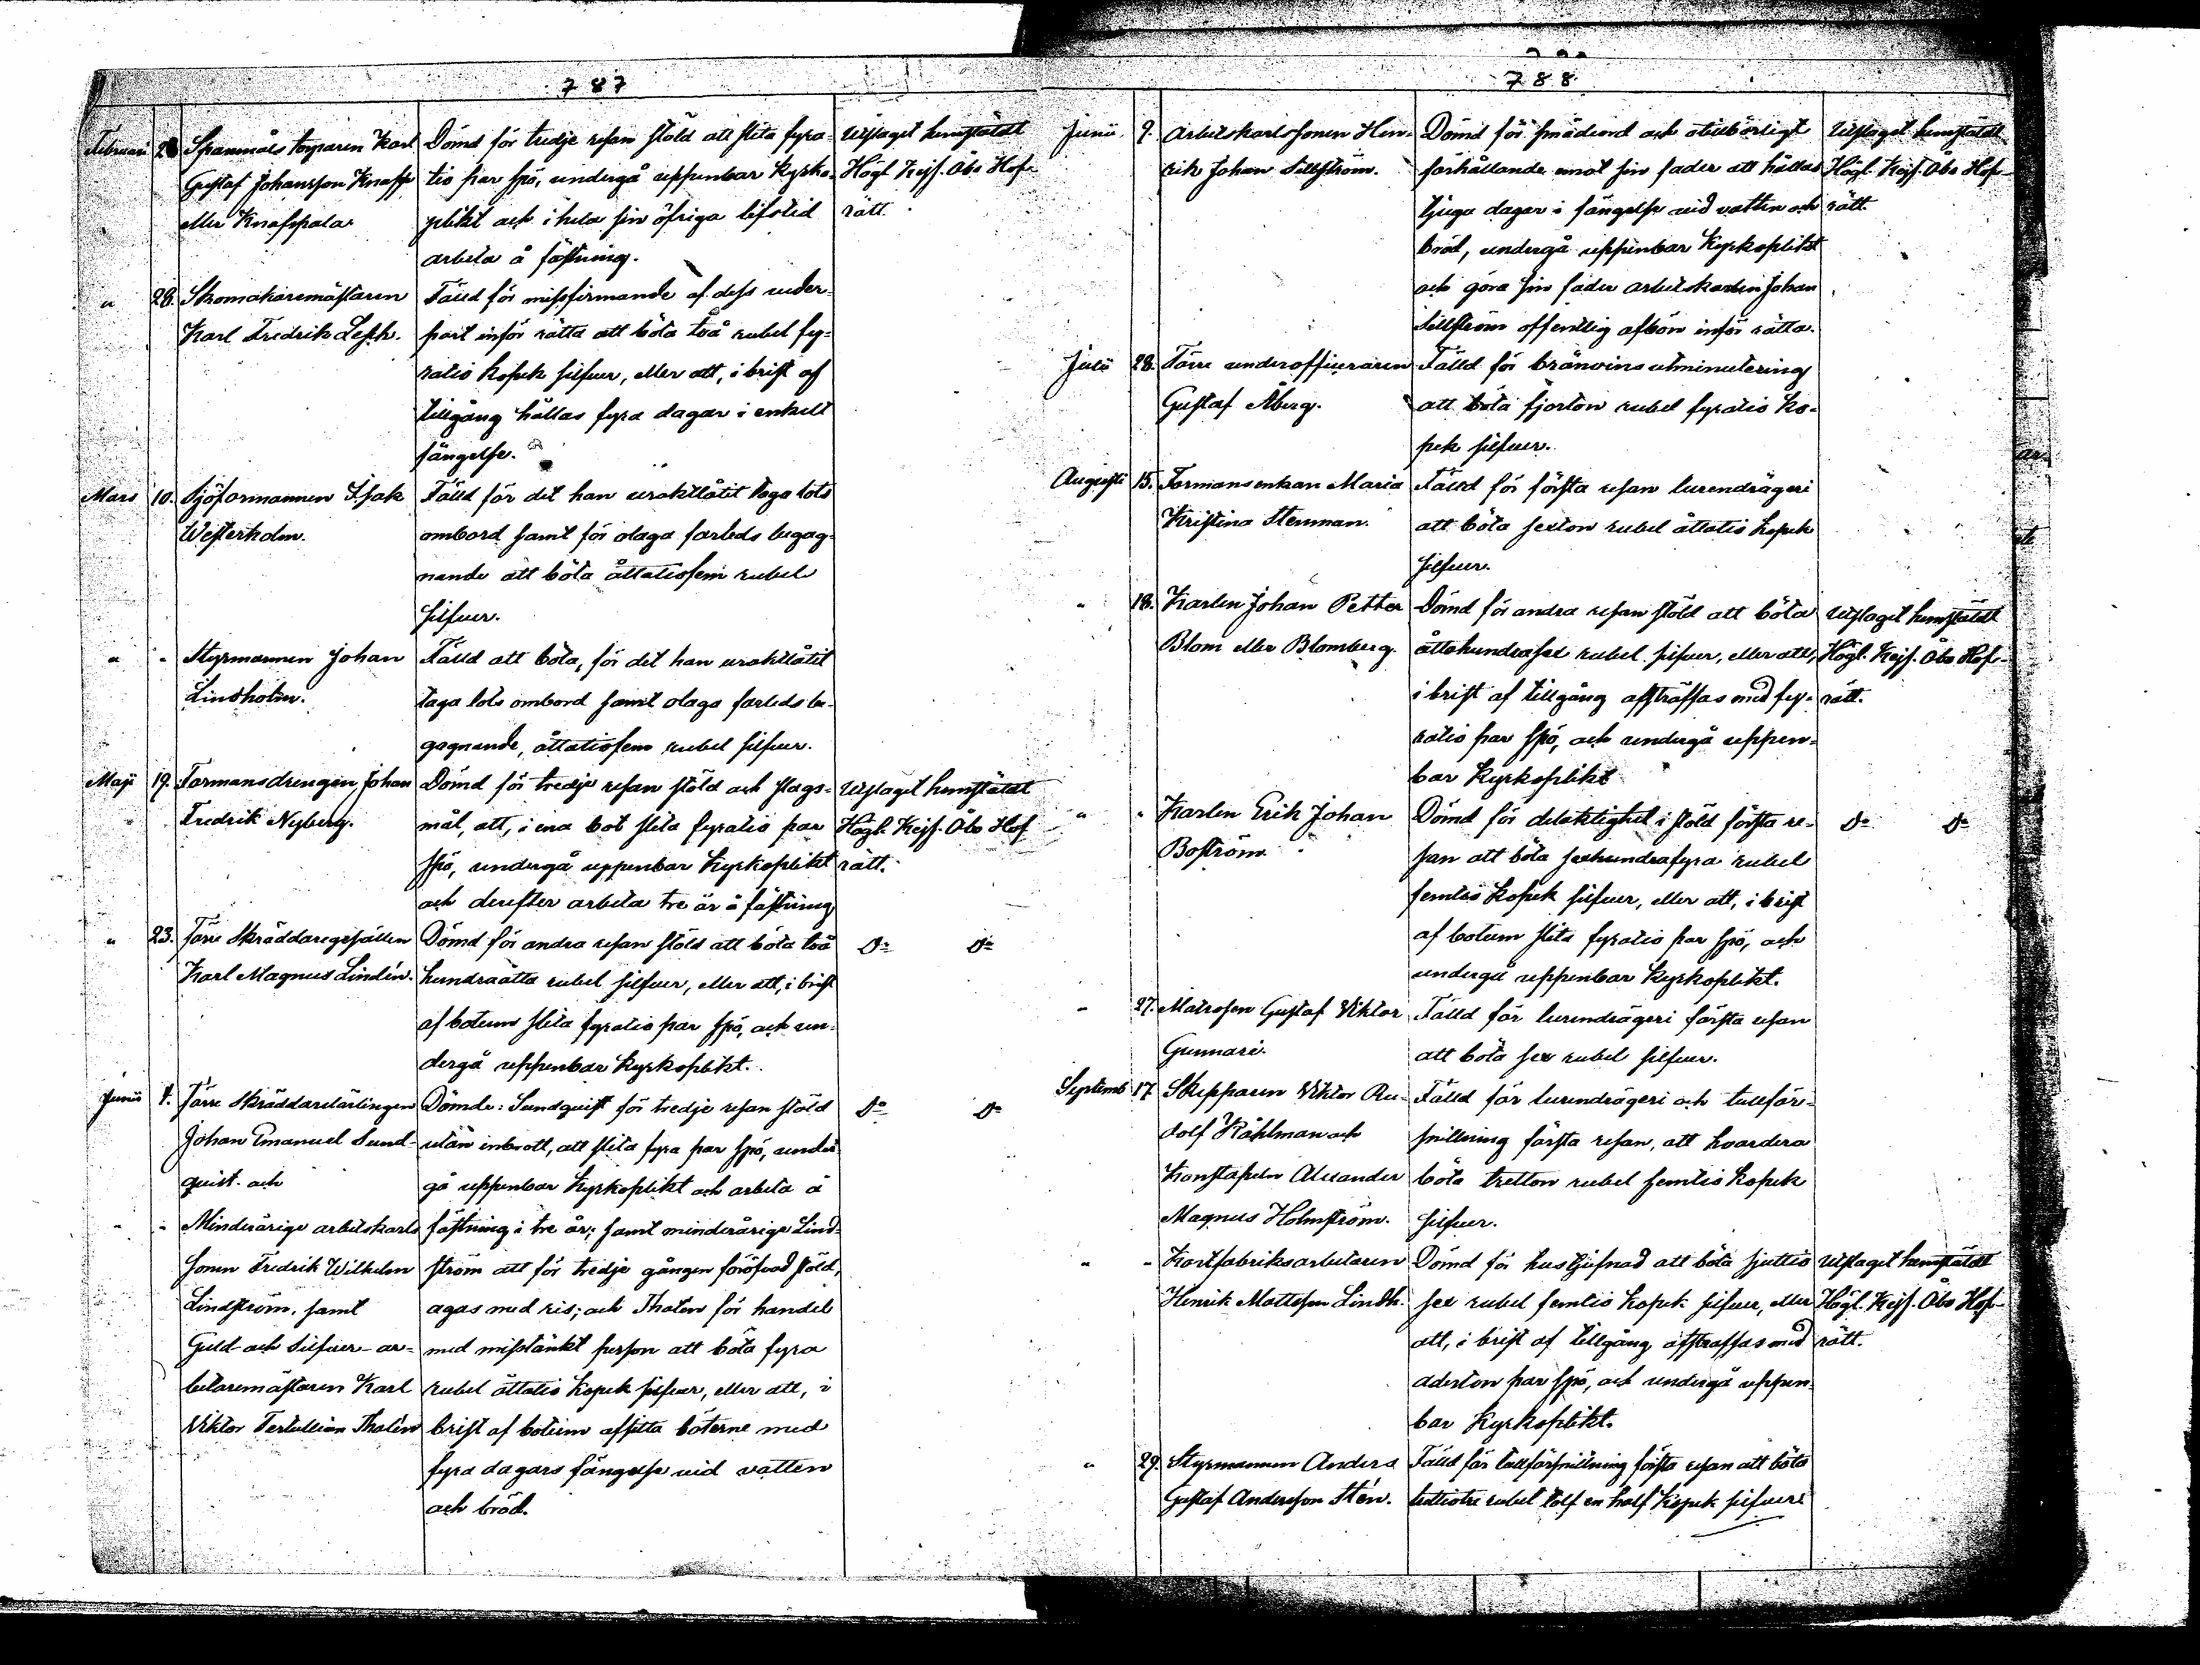 787
Februari 28 Spanmåls toparen Karl Dömd för tredje resan stöld att slita fyra- Utslaget hemstäldt
Gustaf Johansson Knapp tio par spö, undergå uppenbar kyrko- Högl. Kejs. Åbo Hof-
eller Knafspala. plikt och i hela sin öfriga lifstid rätt.
arbeta å fästning.
" 28. Skomakaremästaren Fälld för missfirmande af dess veder-
Karl Fredrik Lesch. part inför rätta att böta två rubel fy-
ratio kopek silfver, eller att, i brist af
tillgång hållas fyra dagar i enkelt
fängelse.
Mars 10. Sjöformannen Isak Fälld för det han uraktlåtit taga lots
Westerholm. ombord samt för olaga farleds begag-
nande att böta åttatiofem rubel
silfver.
" " Styrmannen Johan Fälld att böta, för det han uraktlåtit
Lindholm. taga lots ombord samt olaga farleds be-
gagnande, åttatiofem rubel silfver.
Maji 19. Formansdrengen Johan Dömd för tredje resan stöld och slags- Utslaget hemstäldt
Fredrik Nyberg. mål, att, i ena bot slita fyratio par Högl. Kejs. Åbo Hof
spö, undergå uppenbar kyrkoplikt rätt.
och derefter arbeta tre år å fästning
" 23. Förre Skräddaregesällen Dömd för andra resan stöld att böta två D:o D:o
Karl Magnus Lindén. hundraåtta rubel silfver, eller att, i brist
af botum slita fyratio par spö, och un-
dergå uppenbar kyrkoplikt.
Junii 4. Förre Skräddarelärlingen Dömde: Sundquist för tredje resan stöld D:o D:o
Johan Emanuel Sund- utan inbrott, att slita fyra par spö, under
quist och gå uppenbar kyrkoplikt och arbeta å
" " Minderårige arbetskarls fästning i tre år; samt minderårige Lind-
sonen Fredrik Wilhelm ström att för tredje gången föröfvad stöld,
Lindström, samt agas med ris; och Thalén för handel
Guld- och Silfver- ar- med misstänkt person att böta fyra
betaremästaren Karl rubel åttatio kopek silfver, eller att, i
Viktor Tertullian Thalén brist af botum afsitta böterne med
fyra dagars fängelse vid vatten
och bröd.
788
Junii 9. Arbetskarlssonen Hen- Dömd för smädeord och otillbörligt Utslaget hemstäldt
rik Johan Sillström. förhållande emot sin fader att hållas Högl. Kejs. Åbo Hof-
tjugu dagar i fängelse vid vatten och rätt.
bröd, undergå uppenbar kyrkoplikt
och göra sin fader arbetskarlen Johan
Sillström offentlig afbön inför rätta.
Julii 28. Förre underofficeraren Fälld för bränvins utminutering
Gustaf Åberg. att böta fjorton rubel fyratio ko-
pek silfver.
Augusti 15. Formansenkan Maria Fälld för första resan lurendrägeri
Kristina Stenman. att böta sexton rubel åttatio kopek
silfver.
" 18. Karlen Johan Petter Dömd för andra resan stöld att böta Utslaget hemstäldt
Blom eller Blomberg. åttahundrasex rubel silfver, eller att, Högl. Kejs. Åbo Hof-
i brist af tillgång afstraffas med fy- rätt.
ratio par spö, och undergå uppen-
bar kyrkoplikt
" " Karlen Erik Johan Dömd för delaktighet i stöld första re- D:o D:o
Boström. san att böta sexhundrafyra rubel
femtio kopek silfver, eller att, i brist
af botum slita fyratio par spö, och
undergå uppenbar kyrkoplikt.
" 27. Matrosen Gustaf Viktor Fälld för lurendrägeri första resan
Gunnari. att böta sex rubel silfver.
Septemb 17. Skepparen Viktor Ru- Fälld för lurendrägeri och tullför-
dolf Kåhlman och snillning första resan, att hvardera
Konstapeln Alexander böta tretton rubel femtio kopek
Magnus Holmström. silfver.
" " Kortfabriksarbetaren Dömd för hustjufnad att böta sjuttio Utslaget hemstäldt
Henrik Mattsson Lindh. sex rubel femtio kopek silfver, eller Högl. Kejs. Åbo Hof-
att, i brist af tillgång afstraffas med rätt.
aderton par spö, och undergå uppen-
bar kyrkoplikt.
" 29. Styrmannen Anders Fälld för tullförsnillning första resan att böta
Gustaf Andersson Stén. trettiotre rubel tolf en half kopek silfver